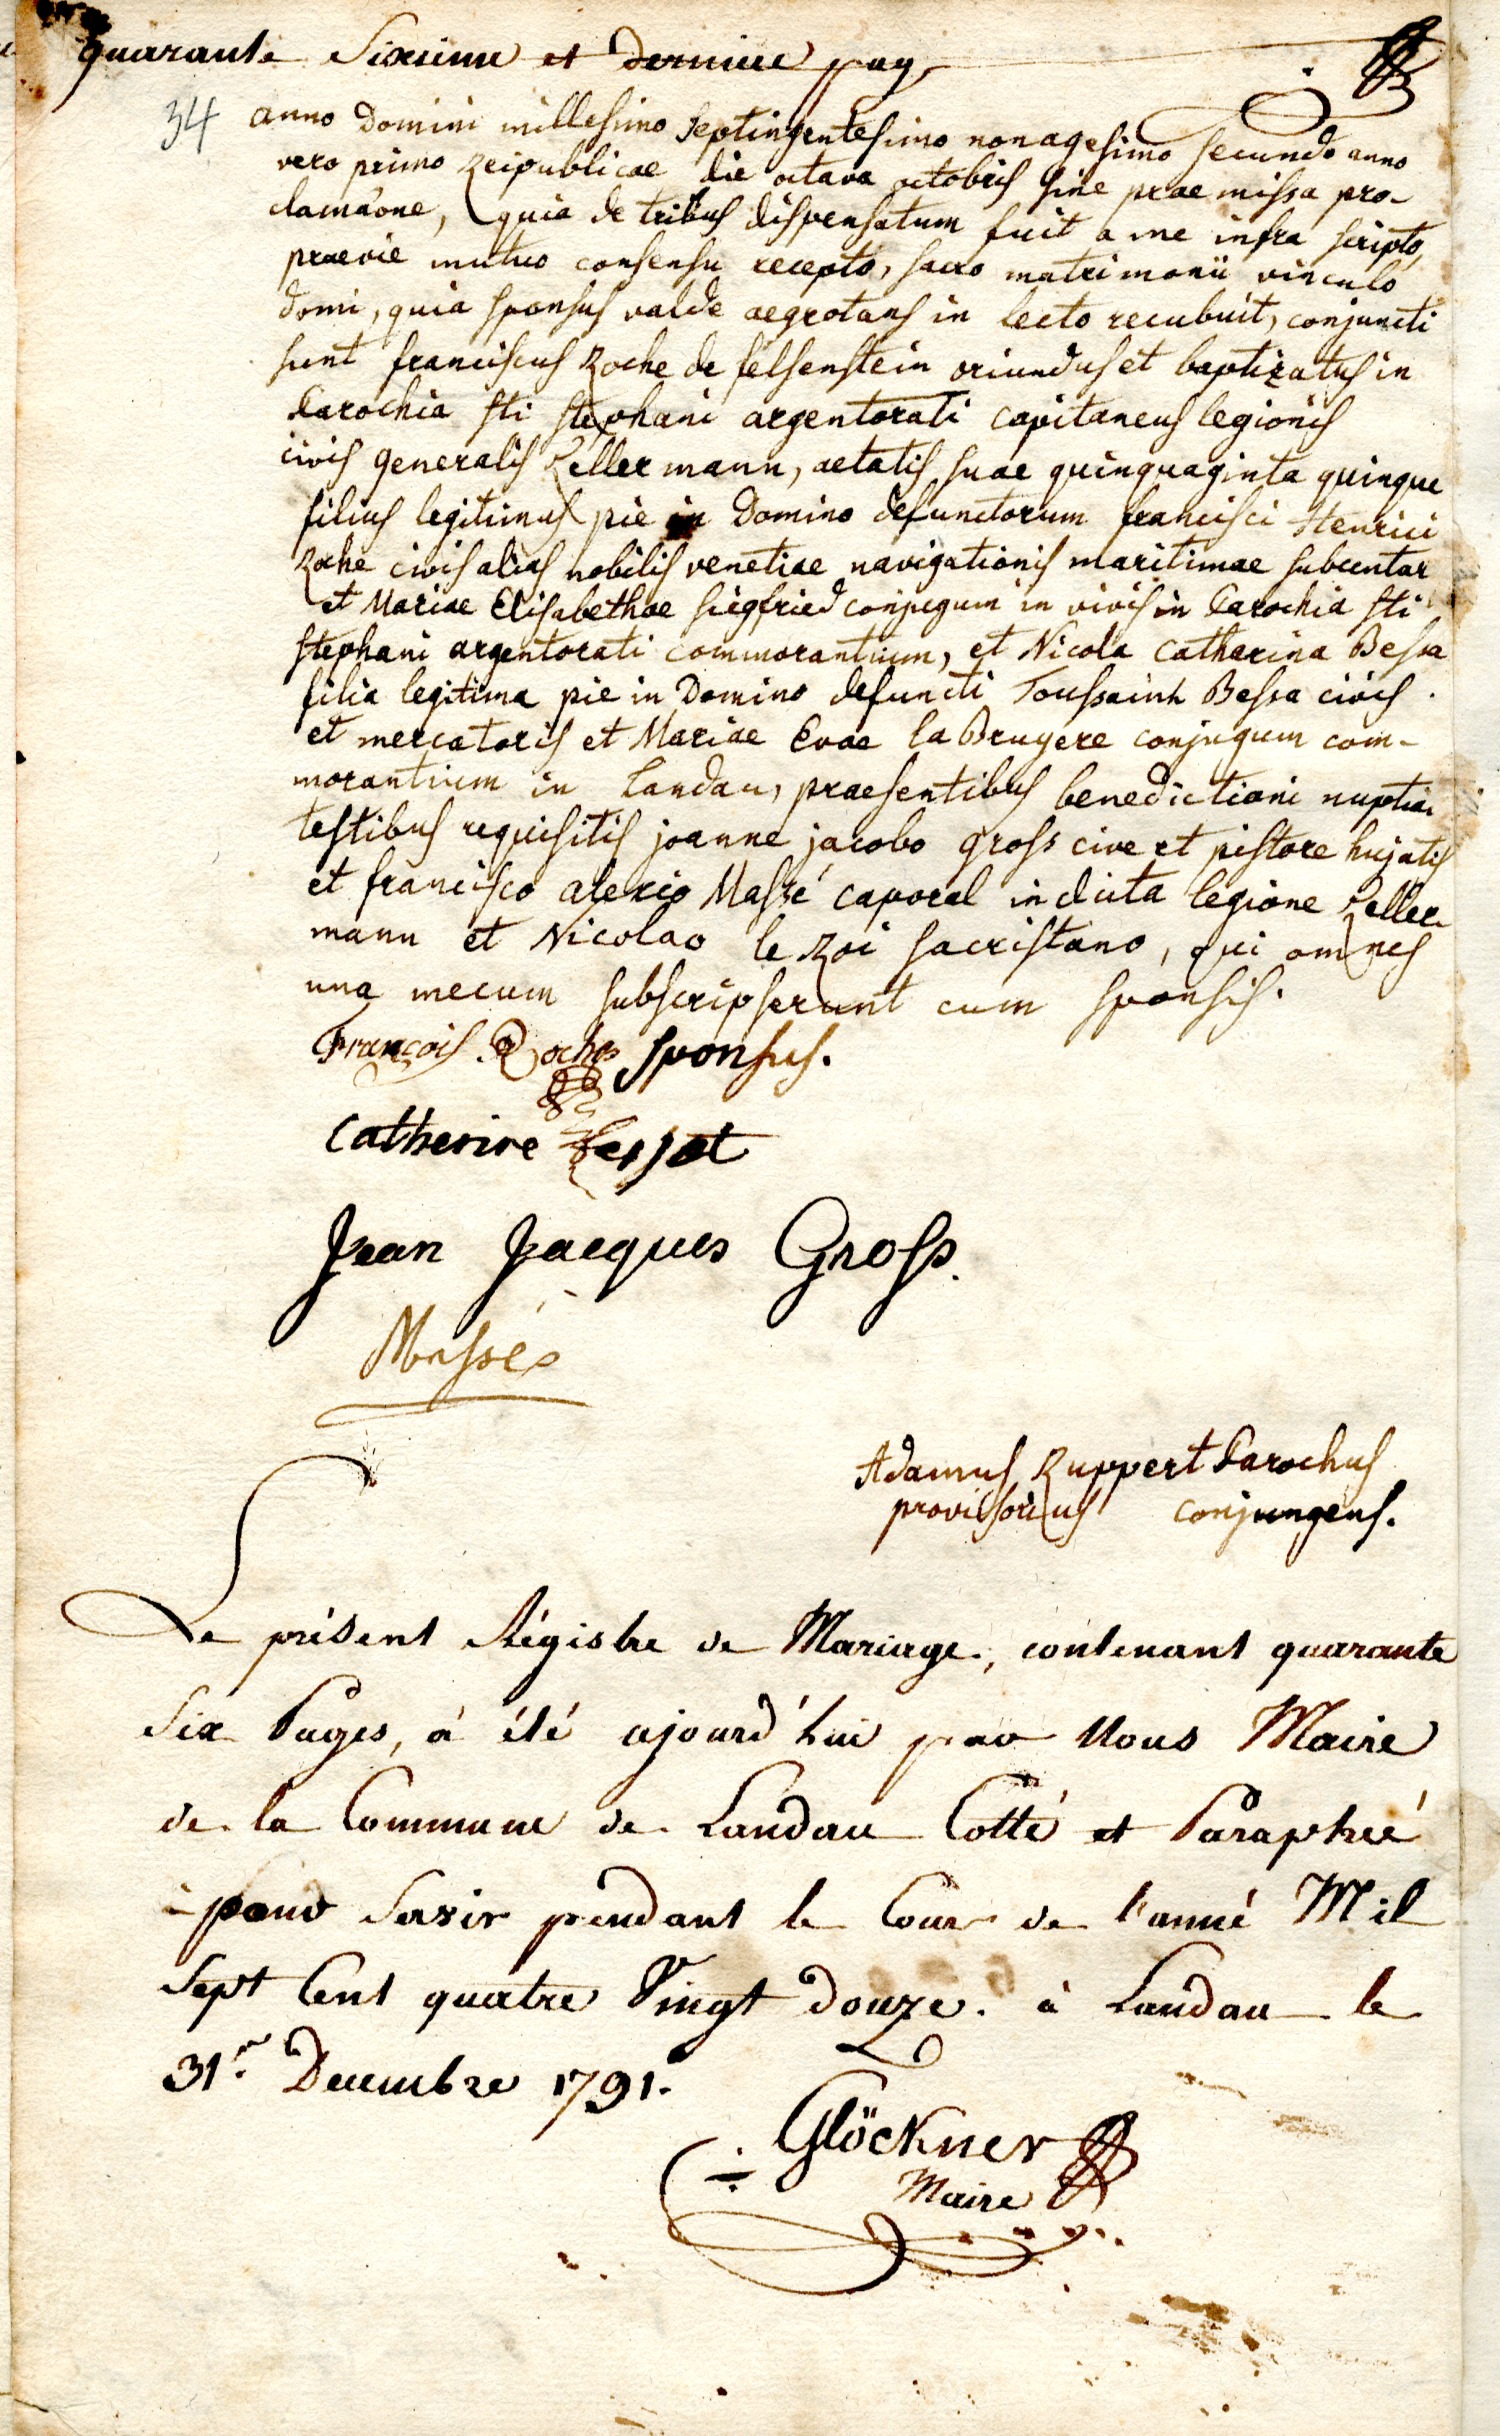 quarante Sixieme et derniere page
34 anno Domini millesimo septingentesimo nonagesimo secundo anno
vero primo Reipublicae die octava octobris sine praemissa pro-
clamaône, quia de tribus dispensatum fuit a me infra scripto,
praevie mutuo consensu recepto, sacro matrimonii vinculo
domi, quia sponsus valde aegrotans in lecto recubuit, conjuncti
sunt franciscus Roche de felsenstein oriundus et baptizatus in
Parochia sti stephani argentorati capitaneus legionis
civis generalis Kellermann, aetatis suae quinquaginta quinque
filius legitimus pie in Domino defunctorum francisci Henrici
Roche civis alias nobilis venetiae navigationis maritimae
et Mariae Elisabethae siegfried conjugum in vivis in Parochia sti
stephani argentorati commorantium, et Nicola Catharina Bessa
filia legitima pie in Domino defuncti Toussaint Bessa civis
et mercatoris et Mariae Evae la Bruyere conjugum com-
morantium in Landau, praesentibus benedictioni nuptia
testibus requisitis joanne jacobo gross cive et pistore hujatis
et francisco alexio Massé caporal in dicta legione Keller-
mann et Nicolao le Roi sacristano, qui omnes
una mecum subscripserunt cum sponsis.
François Roche sponsus.
Catherine
Jean Jacques Gross.
Massé
Adamus Ruppert Parochus
provisorius conjungens.
Le présent Régistre de Mariage, contenant quarante
Six Pages, à été ajourd'hui par Nous Maire
de la Commune de Landau Cotté et Paraphée
pour Servir pendant le Cour de l'année Mil
Sept Cent quatre Vingt douze. à Landau le
31.e Decembre 1791.
Glöckner
Maire